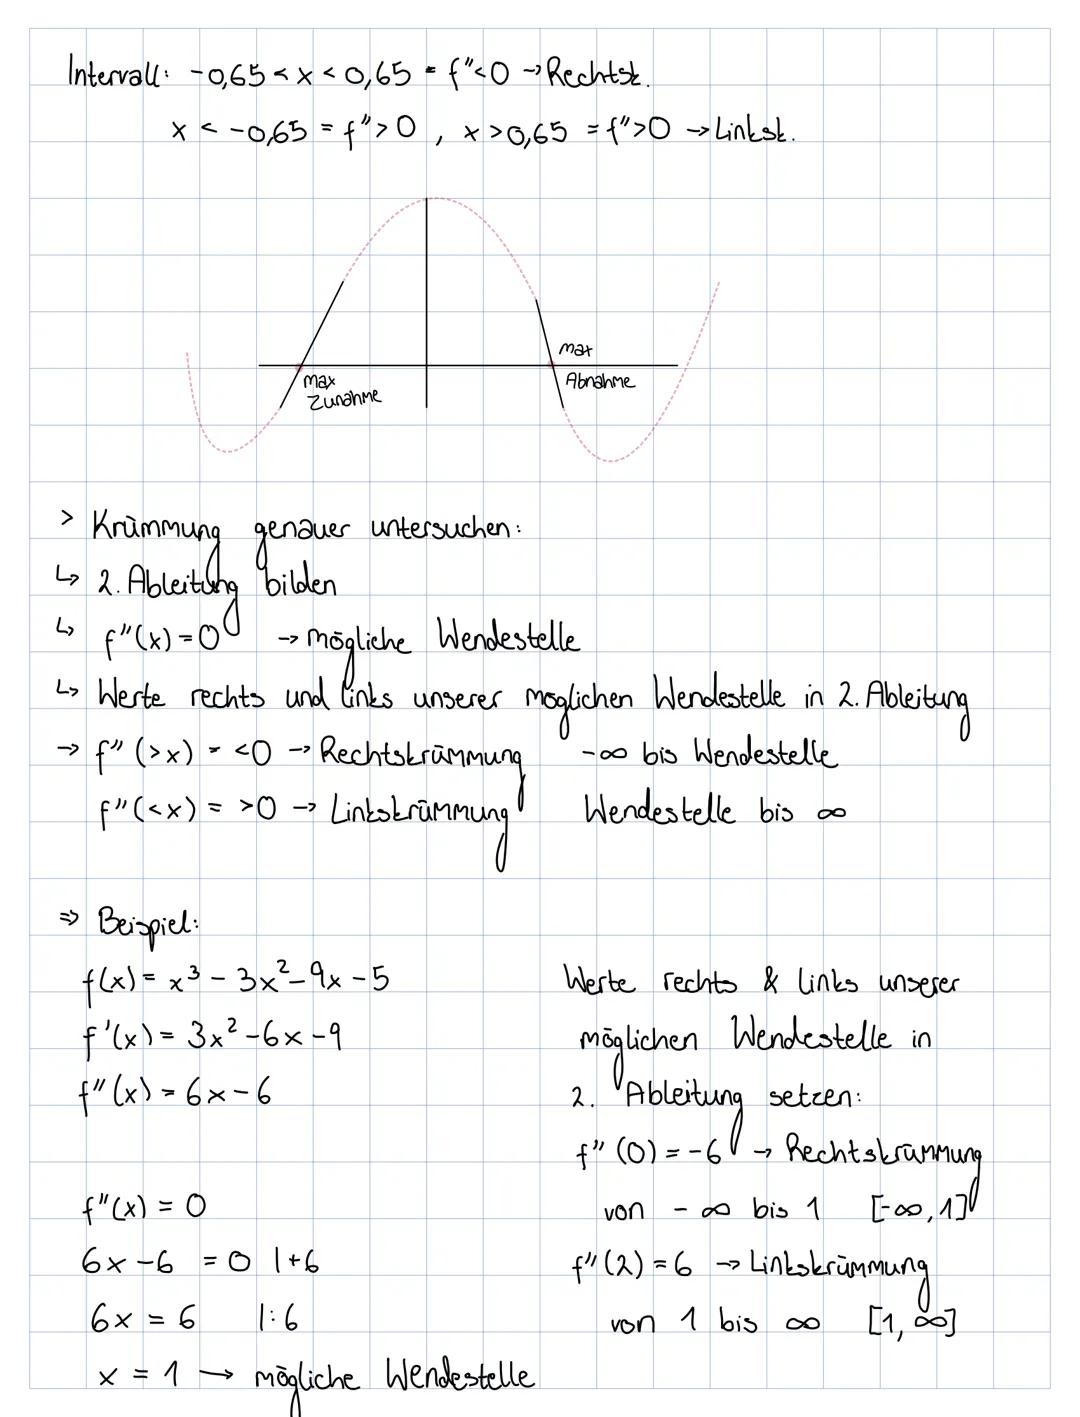 Intervall: -0,65 < x < 0,65 = f"<0 → Rechtsk.
x < -0,65 = f">0 , x >0,65 = f">0 → Linksk.
max
Abnahme
max
Zunahme
> Krümmung genauer untersuchen:
↳ 2. Ableitung bilden
↳ f"(x)=0 → mögliche Wendestelle
↳ Werte rechts und links unserer möglichen Wendestelle in 2. Ableitung
→ f" (>x) = <0 → Rechtskrümmung -∞ bis Wendestelle
f"(<x) = >0 → Linkskrümmung Wendestelle bis ∞
⇒ Beispiel:
f(x) = x³ - 3x² - 9x - 5
f'(x) = 3x² - 6x - 9
f"(x) = 6x - 6
f"(x) = 0
6x - 6 = 0 |+6
6x = 6 |:6
x = 1 → mögliche Wendestelle
Werte rechts & links unserer
möglichen Wendestelle in
2. Ableitung setzen:
f" (0) = -6 → Rechtskrümmung
von - ∞ bis 1 [-∞, 1]
f" (2) = 6 → Linkskrümmung
von 1 bis ∞ [1, ∞]